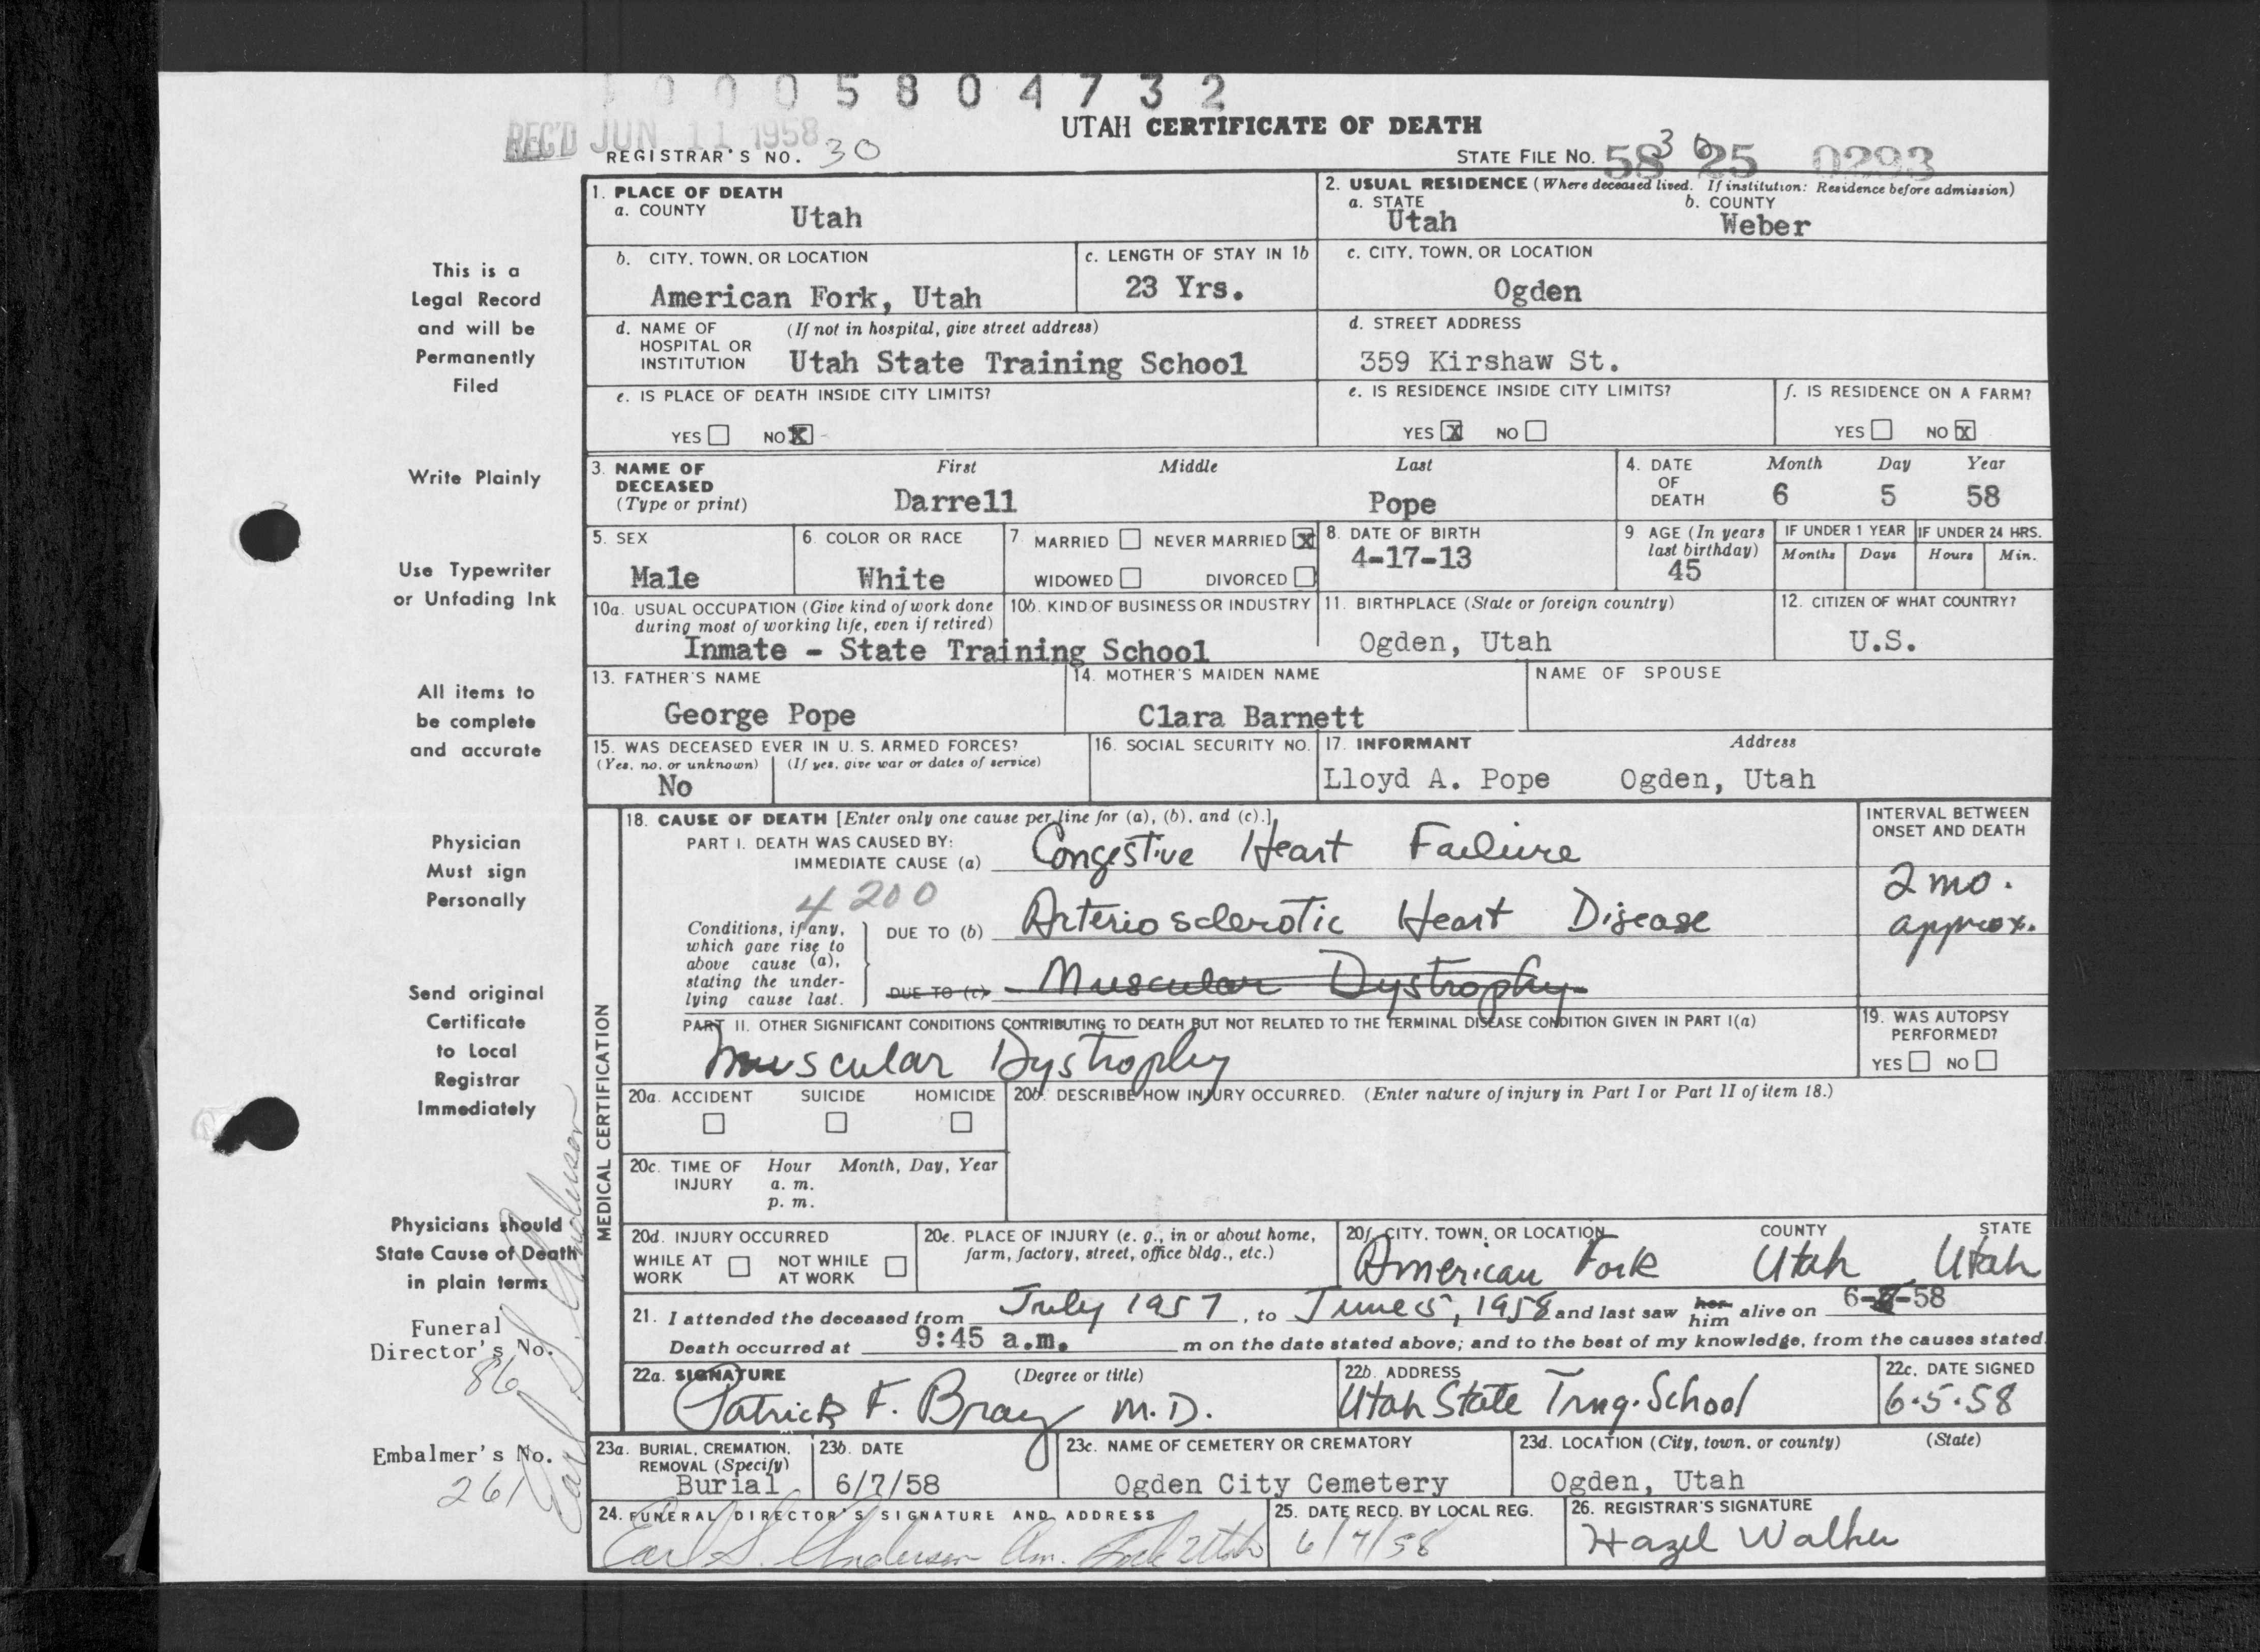 0 0 0 5 8 0 4 7 3 2
REC'D JUN 11 1958
UTAH CERTIFICATE OF DEATH
REGISTRAR'S NO. 30
STATE FILE No. 58 25 0293
1. PLACE OF DEATH
a. COUNTY Utah
2. USUAL RESIDENCE (Where deceased lived. If institution: Residence before admission)
a. STATE Utah b. COUNTY Weber
b. CITY, TOWN, OR LOCATION American Fork, Utah
c. LENGTH OF STAY IN 1b 23 Yrs.
c. CITY, TOWN, OR LOCATION Ogden
d. NAME OF HOSPITAL OR INSTITUTION (If not in hospital, give street address) Utah State Training School
d. STREET ADDRESS 359 Kirshaw St.
e. IS PLACE OF DEATH INSIDE CITY LIMITS?
YES NO X
e. IS RESIDENCE INSIDE CITY LIMITS?
YES X NO
f. IS RESIDENCE ON A FARM?
YES NO X
3. NAME OF DECEASED (Type or print) First Middle Last
Darrell Pope
4. DATE OF DEATH Month Day Year
6 5 58
5. SEX Male
6. COLOR OR RACE White
7. MARRIED NEVER MARRIED X
WIDOWED DIVORCED
8. DATE OF BIRTH 4-17-13
9 AGE (In years last birthday) 45
IF UNDER 1 YEAR Months Days
IF UNDER 24 HRS. Hours Min.
10a. USUAL OCCUPATION (Give kind of work done during most of working life, even if retired)
10b. KIND OF BUSINESS OR INDUSTRY
Inmate - State Training School
11. BIRTHPLACE (State or foreign country) Ogden, Utah
12. CITIZEN OF WHAT COUNTRY? U.S.
13. FATHER'S NAME George Pope
14. MOTHER'S MAIDEN NAME Clara Barnett
NAME OF SPOUSE
15. WAS DECEASED EVER IN U. S. ARMED FORCES?
(Yes, no, or unknown) (If yes, give war or dates of service)
No
16. SOCIAL SECURITY NO.
17. INFORMANT Address
Lloyd A. Pope Ogden, Utah
MEDICAL CERTIFICATION
18. CAUSE OF DEATH [Enter only one cause per line for (a), (b), and (c).]
PART I. DEATH WAS CAUSED BY:
IMMEDIATE CAUSE (a) Congestive Heart Failure
4200
Conditions, if any, which gave rise to above cause (a), stating the underlying cause last.
DUE TO (b) Arteriosclerotic Heart Disease
DUE TO (c) Muscular Dystrophy
INTERVAL BETWEEN ONSET AND DEATH
2 mo. approx.
PART II. OTHER SIGNIFICANT CONDITIONS CONTRIBUTING TO DEATH BUT NOT RELATED TO THE TERMINAL DISEASE CONDITION GIVEN IN PART I(a)
Muscular Dystrophy
19. WAS AUTOPSY PERFORMED?
YES NO
20a. ACCIDENT SUICIDE HOMICIDE
20b. DESCRIBE HOW INJURY OCCURRED. (Enter nature of injury in Part I or Part II of item 18.)
20c. TIME OF INJURY Hour Month, Day, Year
a. m.
p. m.
20d. INJURY OCCURRED
WHILE AT WORK NOT WHILE AT WORK
20e. PLACE OF INJURY (e. g., in or about home, farm, factory, street, office bldg., etc.)
20f. CITY, TOWN, OR LOCATION COUNTY STATE
American Fork Utah Utah
21. I attended the deceased from July 1957, to June 5, 1958 and last saw her him alive on 6- -58
Death occurred at 9:45 a.m. m on the date stated above; and to the best of my knowledge, from the causes stated.
22a. SIGNATURE (Degree or title)
Patrick F. Bray M.D.
22b. ADDRESS
Utah State Trng. School
22c. DATE SIGNED
6-5-58
23a. BURIAL, CREMATION, REMOVAL (Specify) Burial
23b. DATE 6/7/58
23c. NAME OF CEMETERY OR CREMATORY Ogden City Cemetery
23d. LOCATION (City, town, or county) (State) Ogden, Utah
24. FUNERAL DIRECTOR'S SIGNATURE AND ADDRESS
Earl S. Anderson Am. Fork Utah
25. DATE RECD. BY LOCAL REG.
6/7/58
26. REGISTRAR'S SIGNATURE
Hazel Walker
This is a
Legal Record
and will be
Permanently
Filed
Write Plainly
Use Typewriter
or Unfading Ink
All items to
be complete
and accurate
Physician
Must sign
Personally
Send original
Certificate
to Local
Registrar
Immediately
Physicians should
State Cause of Death
in plain terms
Funeral
Director's No.
86
Embalmer's No.
261
Earl S. Anderson